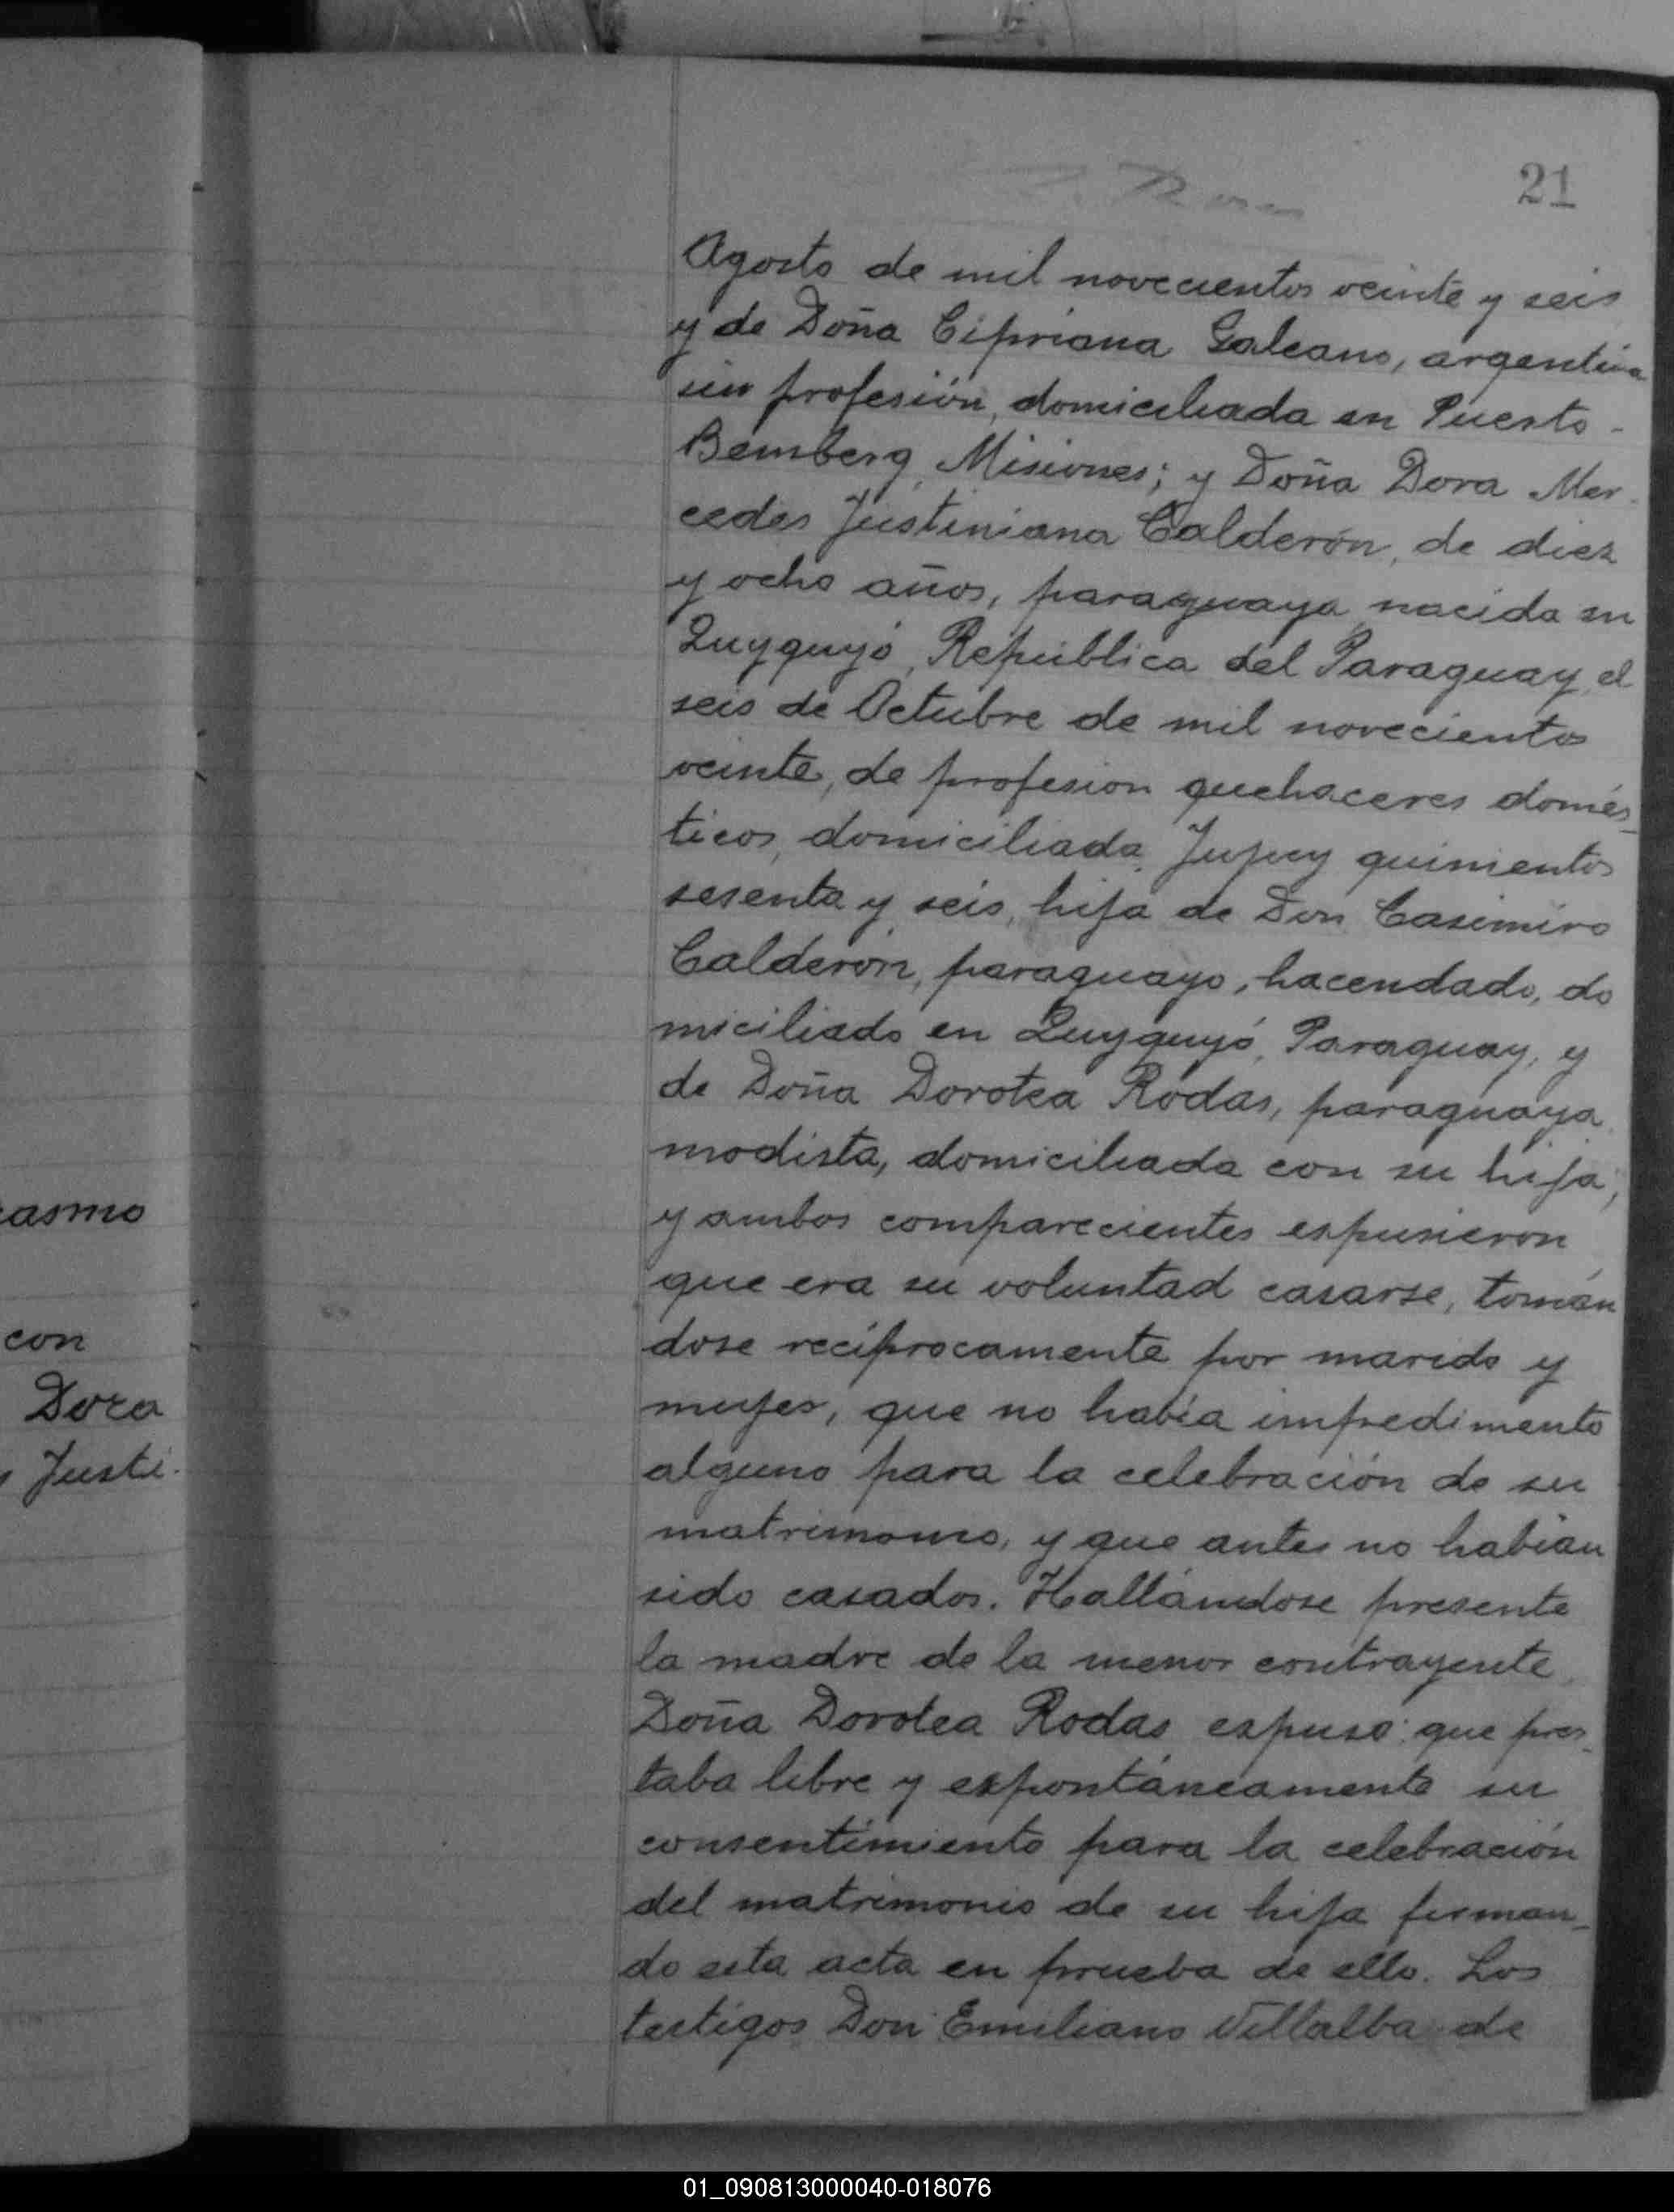 21
Agosto de mil novecientos veinte y seis
y de Doña Cipriana Galeano, argentina
sin profesión, domiciliada en Puesto -
Bemberg, Misiones; y Doña Dora Mer-
cedes Justiniana Calderón, de diez
y ocho años, paraguaya nacida en
Quyquyó, República del Paraguay, el
seis de Octubre de mil novecientos
veinte, de profesion quehaceres domés-
ticos, domiciliada Jujuy quinientos
sesenta y seis, hija de Don Casimiro
Calderón, paraguayo, hacendado, do
miciliado en Quyquyó, Paraguay, y
de Doña Dorotea Rodas, paraguaya,
modista, domiciliada con su hija,
y ambos comparecientes expusieron
que era su voluntad casarse, tomán
dose recíprocamente por marido y
mujer, que no había impedimento
alguno para la celebración de su
matrimonio, y que antes no habían
sido casados. Hallándose presente
la madre de la menor contrayente
Doña Dorotea Rodas expuso: que pres-
taba libre y expontáneamente su
consentimiento para la celebración
del matrimonio de su hija firman-
do esta acta en prueba de ello. Los
testigos Don Emiliano Villalba de
asmo
con
Dora
Justi-
01_090813000040-018076